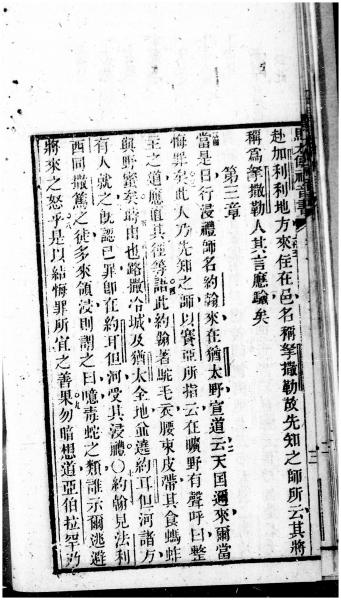 赴加利利地方來住在邑名稱拏撒勒故先知之師所云其將
稱爲拏撒勒人其言應騐矣
第三章
當是日行浸禮師名約翰來在猶太野宣道云天国邇來爾當
悔罪矣此人乃先知之師以賽亞所指云在曠野有聲呼曰整
主之道應直其徑等語此約翰著駝毛衣腰束皮帶其食螞蚱
與野蜜矣時由也路撒冷城及猶太全地並遶約耳但河諸方
有人就之旣認已罪卽在約耳但河受其浸禮〇約翰見法利
西同撒篤之徒多來領浸則謂之曰噫毒蛇之類誰示爾逃避
將來之怒乎是以結悔罪所宜之善果勿暗想道亞伯拉罕乃